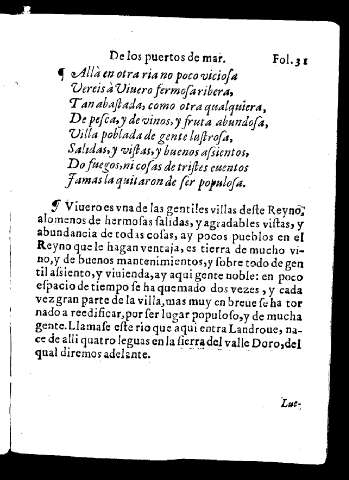 De los puertos de mar. Fol. 31
¶ Allà en otra ria no poco viciosa
Vereis à Viuero fermosa ribera,
Tan abastada, como otra qualquiera,
De pesca, y de vinos, y fruta abundosa,
Villa poblada de gente lustrosa,
Salidas, y vistas, y buenos assientos,
Do fuegos, ni cosas de tristes euentos
Jamas la quitaron de ser populosa.
¶ Viuero es vna de las gentiles villas deste Reyno,
alomenos de hermosas salidas, y agradables vistas, y
abundancia de todas cosas, ay pocos pueblos en el
Reyno que le hagan ventaja, es tierra de mucho vi-
no, y de buenos mantenimientos, y sobre todo de gen
til assiento, y viuienda, ay aqui gente noble: en poco
espacio de tiempo se ha quemado dos vezes, y cada
vez gran parte de la villa, mas muy en breue se ha tor
nado a reedificar, por ser lugar populoso, y de mucha
gente. Llamase este rio que aqui entra Landroue, na-
ce de alli quatro leguas en la sierra del valle Doro, del
qual diremos adelante.
Lue-